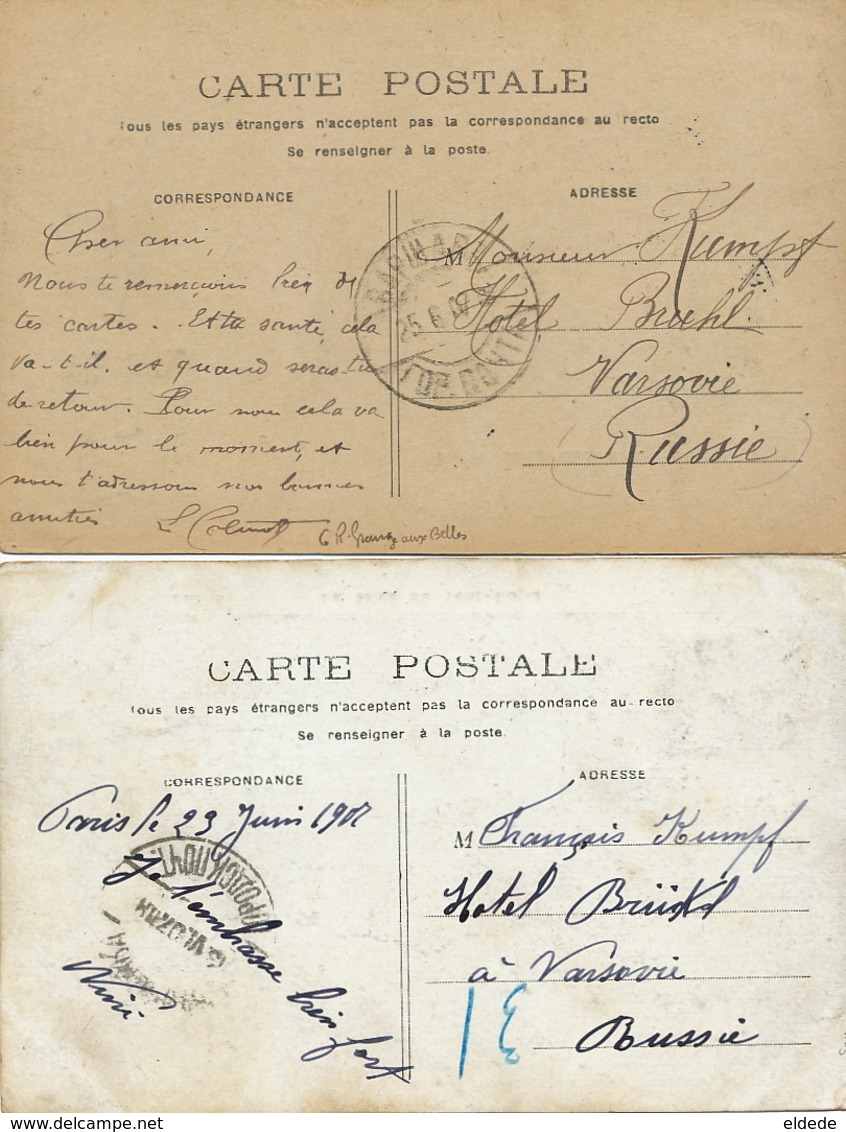 CARTE POSTALE
Tous les pays étrangers n'acceptent pas la correspondance au recto
Se renseigner à la poste.
CORRESPONDANCE
Cher ami,
Nous te remerçions bien de
tes cartes. Et ta santé, cela
va-t-il, et quand seras-tu
de retour. Pour nous cela va
bien pour le moment, et
nous t'adressons nos bonnes
amitiés
6 R. Grange aux Belles
ADRESSE
M Monsieur Kumpf
Hotel Bruehl
Varsovie
Russie
CARTE POSTALE
Tous les pays étrangers n'acceptent pas la correspondance au recto
Se renseigner à la poste.
CORRESPONDANCE
Paris le 23 Juin 1907
Je t'embrasse bien fort
Nini
ADRESSE
M François Kumpf
Hotel Brühl
à Varsovie
Russie
delcampe.net
eldede